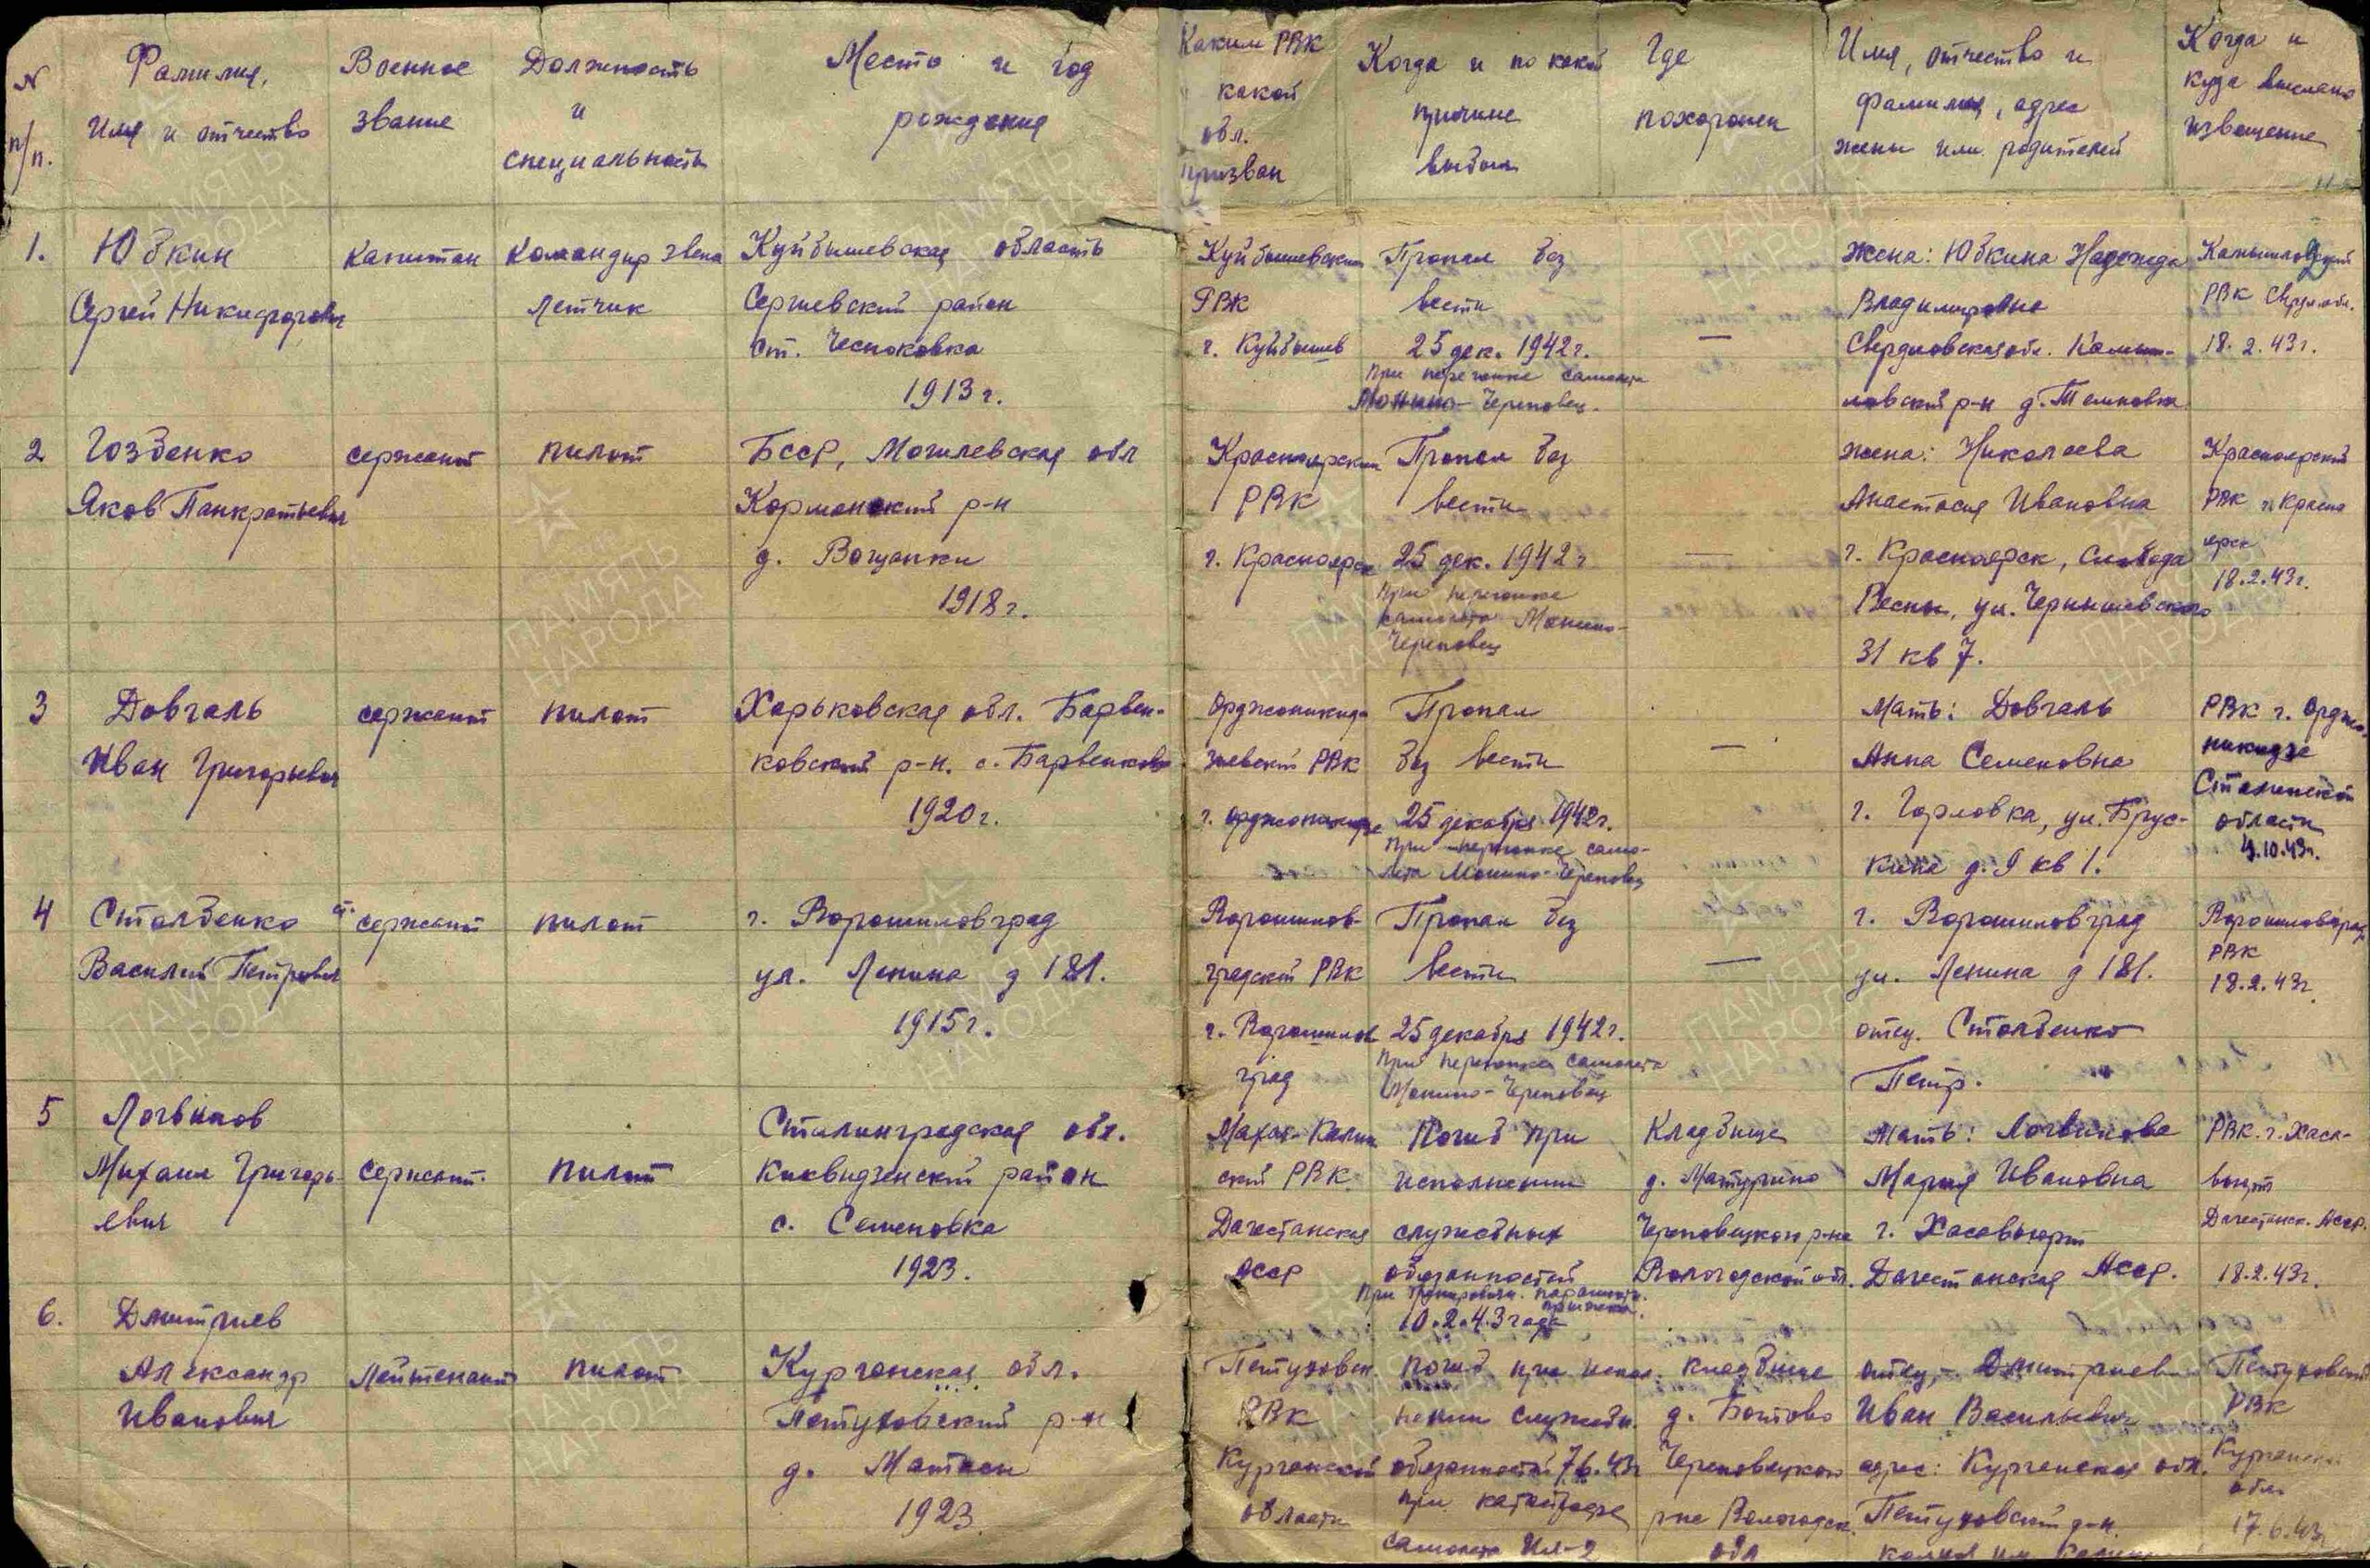 N п/п.
Фамилия,
Имя и отчество
Военное
звание
Должность
и
специальность
Место и год
рождения
Каким РВК
какой
обл.
призван
Когда и по какой
причине
выбыл
Где
похоронен
Имя, отчество и
фамилия, адрес
жены или родителей
Когда и
куда выслано
извещение
1.
Юдкин
Сергей Никифорович
капитан
командир звена
летчик
Куйбышевская область
Сергиевский район
ст. Чесноковка
1913 г.
Куйбышевским
РВК
г. Куйбышев
Пропал без
вести
25 дек. 1942 г.
при перегонке самолета
Монино-Череповец.
—
жена: Юдкина Надежда
Владимировна
Свердловская обл. Камыш-
ловский р-н д.
Камышловский
РВК Свердл. обл.
18.2.43 г.
2
Гозбенко
Яков Панкратьевич
сержант
пилот
БССР, Могилевская обл
Кормянский р-н
д. Вощанки
1918 г.
Красноярским
РВК
г. Красноярск
Пропал без
вести
25 дек. 1942 г
при перегонке
самолета Монино-
Череповец
—
жена: Николаева
Анастасия Ивановна
г. Красноярск, Слобода
Весны, ул. Чернышевского
31 кв 7.
Красноярский
РВК г. Красно
ярск
18.2.43 г.
3
Довгаль
Иван Григорьевич
сержант
пилот
Харьковская обл. Барвен-
ковский р-н. с. Барвенково
1920 г.
Орджоникид-
зевский РВК
г. Орджоникидзе
Пропал
без вести
25 декабря 1942 г.
при перегонке само-
лета Монино-Череповец
—
Мать: Довгаль
Анна Семеновна
г. Горловка, ул. Брус-
кина д. 9 кв 1.
РВК г. Орджо-
никидзе
Сталинской
области
4.10.43 г.
4
Столбенко
Василий Петрович
ст. сержант
пилот
г. Ворошиловград
ул. Ленина д 181.
1915 г.
Ворошилов-
градский РВК
г. Ворошилов
град
Пропал без
вести
25 декабря 1942 г.
при перегонке самолета
Монино-Череповец
—
г. Ворошиловград
ул. Ленина д 181.
отец. Столбенко
Петр.
Ворошиловград
РВК
18.2.43 г.
5
Логвинов
Михаил Григорь-
евич
сержант.
пилот
Сталинградская обл.
Киквидзенский район
с. Семеновка
1923.
Махач-Калин
ский РВК
Дагестанская
АССР
Погиб при
исполнении
служебных
обязанностей
при тренировочн. парашютн.
прыжках.
10.2.43 года
Кладбище
д. Матурино
Череповецкого р-на
Вологодской обл.
Мать: Логвинова
Мария Ивановна
г. Хасавьюрт
Дагестанская АССР.
РВК. г. Хаса-
вьюрт
Дагестанск. АССР.
18.2.43 г.
6.
Дмитриев
Александр
Иванович
Лейтенант
пилот
Курганская обл.
Петуховский р-н
д. Матасы
1923
Петуховск.
РВК
Курганской
области
погиб при испол-
нении служебн.
обязанностей 7.6.43г
при катастрофе
самолета Ил-2
кладбище
д. Ботово
Череповецкого
р-не Вологодск.
обл
отец,- Дмитриев
Иван Васильевич
адрес: Курганская обл.
Петуховский р-н.
Петуховский
РВК
Курганской
обл.
17.6.43
ПАМЯТЬ
НАРОДА